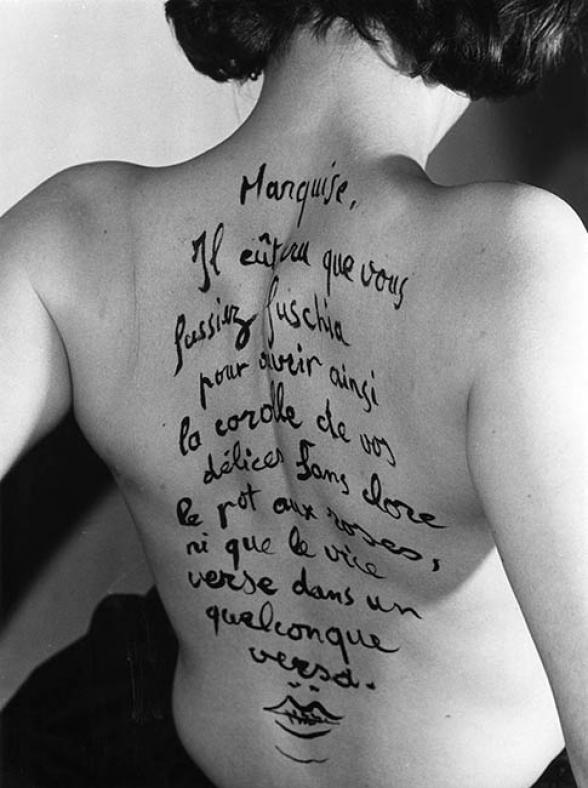 Marquise,
Il eût cru que vous
fussiez fuschia
pour ouvrir ainsi
la corolle de vos
délices sans clore
le pot aux roses,
ni que le vice
verse dans un
quelconque
versa.